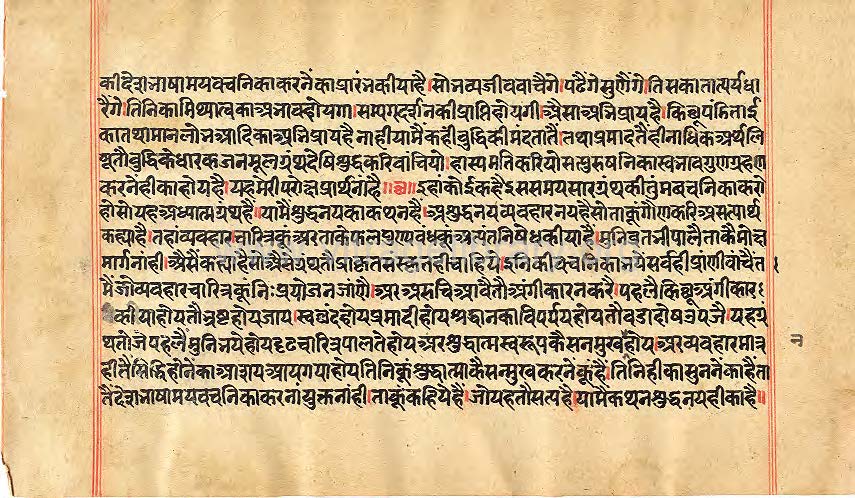 कीदेशभाषामयवचनिकाकरनेंकाप्रारंभकीयाहै। सोभव्यजीववाचैंगे। पढैंगेसुणैंगे। तिसकातात्पर्यधा
रैंगे। तिनिकामिथ्यात्वकाअभावहोयगा। सम्यग्दर्शनकीप्राप्तिहोयगी। ऐसाअभिप्रायहै। किछूपंडिताई
कातथामानलोभआदिकाअभिप्रायहैनाहीयामैंकहींबुद्धिकीमंदतातैं। तथाप्रमादतैंहीनाधिकअर्थलि
षूतौबुद्धिकेधारकजनमूलग्रंथदेषिशुद्धकरिवांचियो। हास्यमतिकरियोसत्पुरुषनिकास्वभावगुणग्रहण
करनेहीकाहोयहै। यहमेरीपरोक्षप्रार्थनाहै॥ इहांकोईकहैइससमयसारग्रंथकीतुमवचनिकाकरो
होसोयहअध्यात्मग्रंथहै। यामैंशुद्धनयकाकथनहै। अशुद्धनयव्यवहारनयहैसोताकूंगौणकरिअसत्यार्थ
कह्याहै। तहांव्यवहारचारित्रकूंअरताकेफलपुण्यबंधकूंअत्यंतनिषेधकीयाहै। मुनिव्रतभीपालैताकैमोक्ष
मार्गनांही। ऐसैंकह्याहैसोऐसेग्रंथतौप्राकृतसंस्कृतहीचाहिये। इनिकीवचनिकाभयेंसर्वहीप्राणीवांचैंत
मैंजोव्यवहारचारित्रकूंनिःप्रयोजनजाणै। अरअरुचिआवैतौअंगीकारनकरै। पहलैंकिछूअंगीकार
कीयाहोयतौभ्रष्टहोयजाय। स्वच्छंदहोयप्रमादीहोयश्रद्धानकाविपर्ययहोयतौबडादोषउपजै। यहग्रं
थतौजेपहलैंमुनिभयेहोयदृढचारित्रपालतेहोयअरशुद्धात्मस्वरूपकैसनमुखहोय। अरव्यवहारमात्र
हीतैंसिद्धिहोनेकाआशयआयगयाहोयतिनिकूंशुद्धात्माकैसन्मुखकरनेकूंहै। तिनिहीकासुननेंकाहैंता
तैंदेशभाषामयवचनिकाकरनांयुक्तनांही। ताकूंकहियेहै। जोयहतौसत्यहै। यामैंकथनशुद्धनयहीकाहै॥
न